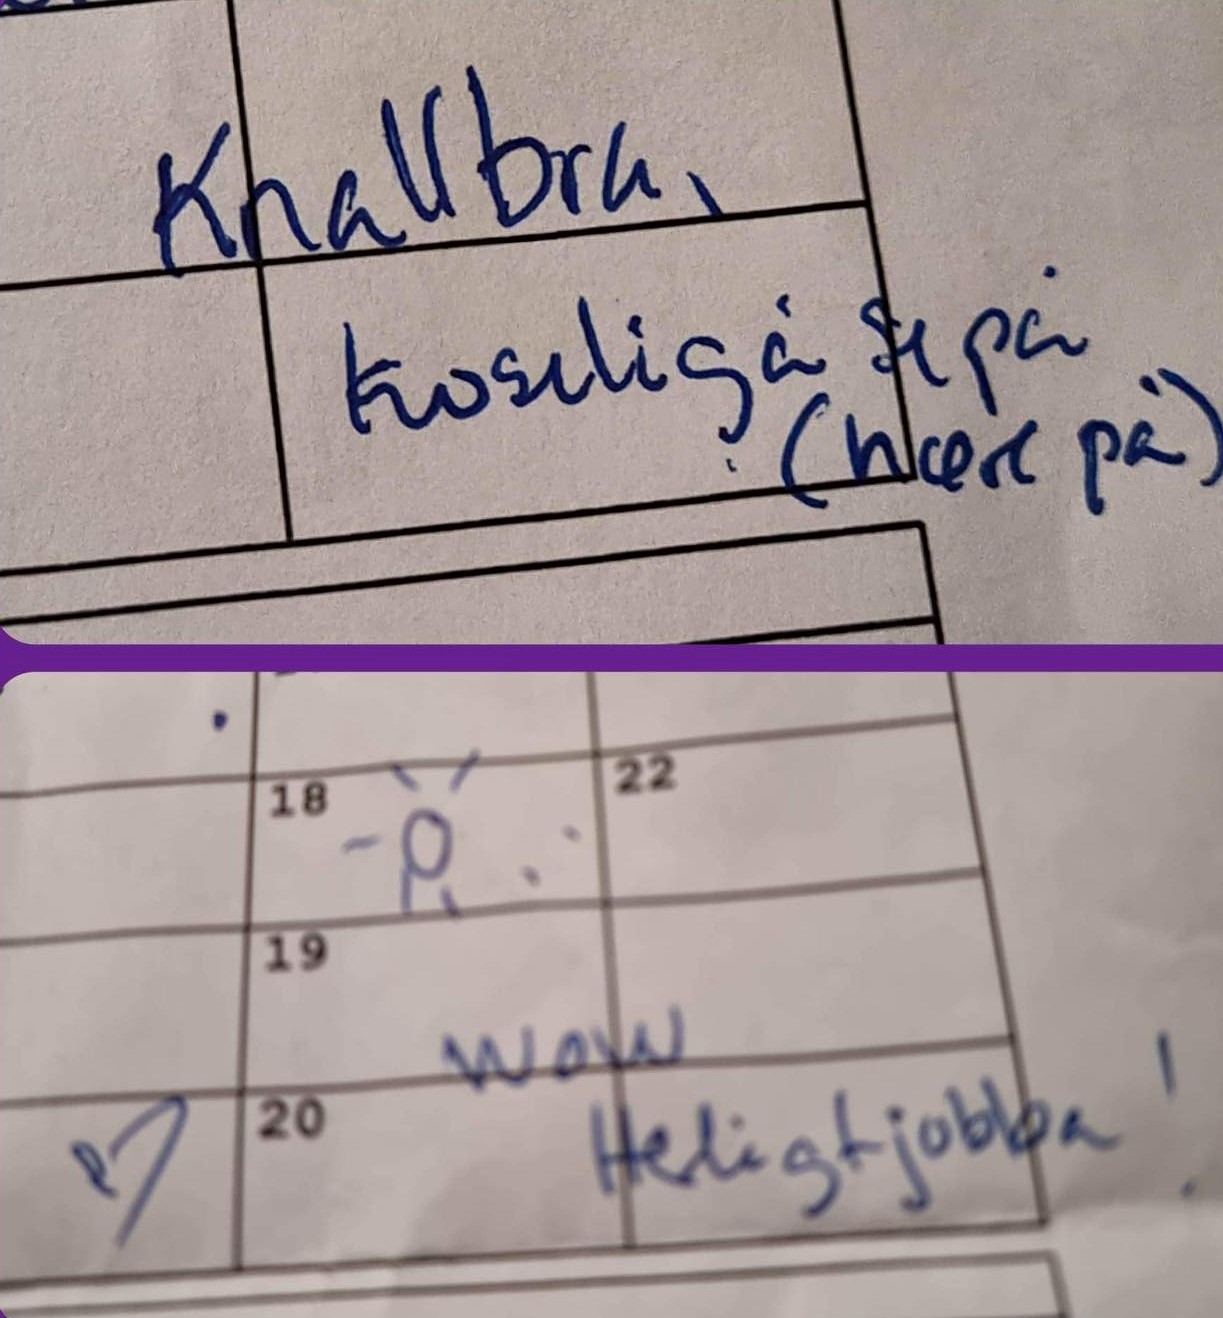 Knallbra,
koselig å se på
(høre på)
18
22
19
Wow
20
Herligt jobba!